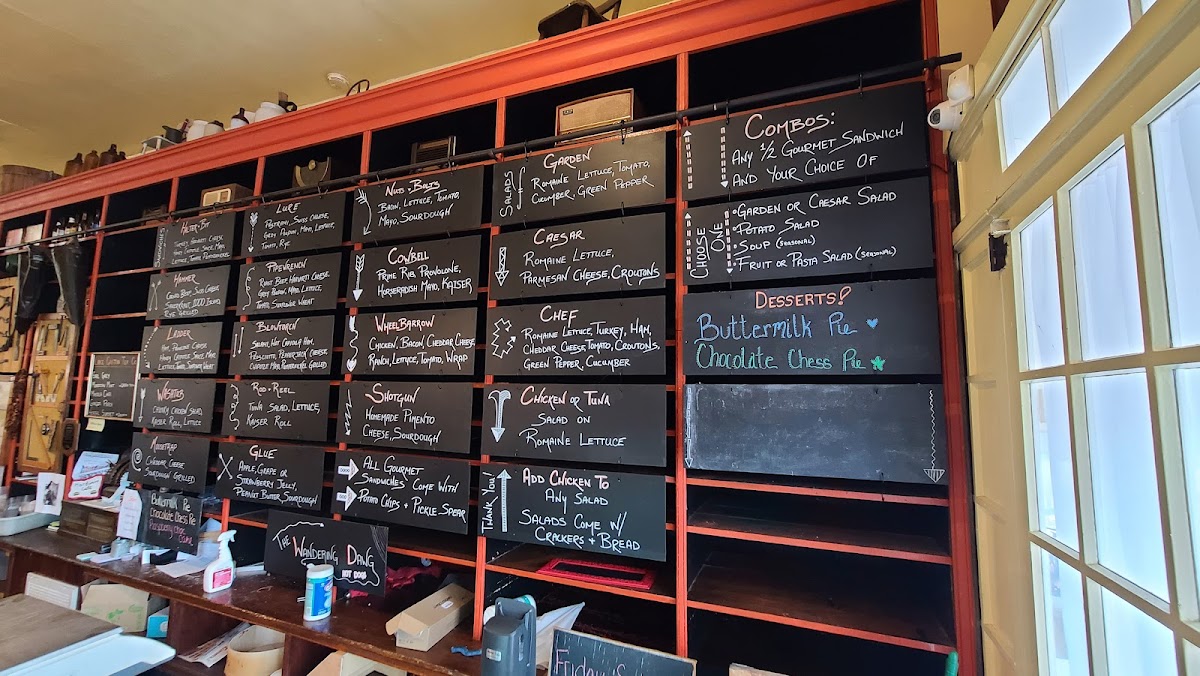 Heifer-Bit
Turkey, Havarti Cheese,
Honey Chipotle Sauce, Mayo,
Lettuce, Tomato,
Hammer
Corned Beef, Swiss Cheese
Sauerkraut, 1000 Island
Rye Grilled
Ladder
Ham, Provolone Cheese
Honey Chipotle Sauce, Mayo
Lettuce, Tomato, Sourdough
Washtub
Chunky Chicken Salad
Kaiser Roll, Lettuce
Mousetrap
Cheddar Cheese
Sourdough Grilled
Buttermilk Pie
Chocolate Chess Pie
Raspberry Choc
Cake
Lure
Pastrami, Swiss Cheese,
Grey Poupon, Mayo, Lettuce,
Tomato, Rye
Pipewrench
Roast Beef, Havarti Cheese
Grey Poupon, Mayo, Lettuce,
Tomato, Sunflower Wheat
Blowtorch
Salami, Hot Capicola Ham,
Prosciutto, Pepper Jack Cheese
Chipotle Mayo, Grilled
Rod & Reel
Tuna Salad, Lettuce,
Kaiser Roll
Glue
Apple, Grape or
Strawberry Jelly,
Peanut Butter, Sourdough
The Wandering Dang
Hot Dogs
Nuts & Bolts
Bacon, Lettuce, Tomato,
Mayo, Sourdough
Cowbell
Prime Rib, Provolone,
Horseradish Mayo, Kaiser
WheelBarrow
Chicken, Bacon, Cheddar Cheese
Ranch, Lettuce, Tomato, Wrap
Shotgun
Homemade Pimento
Cheese, Sourdough
All Gourmet
Sandwiches Come With
Potato Chips & Pickle Spear
Salads
Garden
Romaine Lettuce, Tomato,
Cucumber, Green Pepper
Caesar
Romaine Lettuce,
Parmesan Cheese, Croutons
Chef
Romaine Lettuce, Turkey, Ham,
Cheddar Cheese, Tomato, Croutons,
Green Pepper, Cucumber
Chicken or Tuna
Salad on
Romaine Lettuce
Thank You
Add Chicken To
Any Salad
Salads Come W/
Crackers & Bread
Combos:
Any 1/2 Gourmet Sandwich
And Your Choice Of
Choose One
•Garden or Caesar Salad
•Potato Salad
•Soup (Seasonal)
Fruit or Pasta Salad (Seasonal)
Desserts!
Buttermilk Pie
Chocolate Chess Pie
Friday's